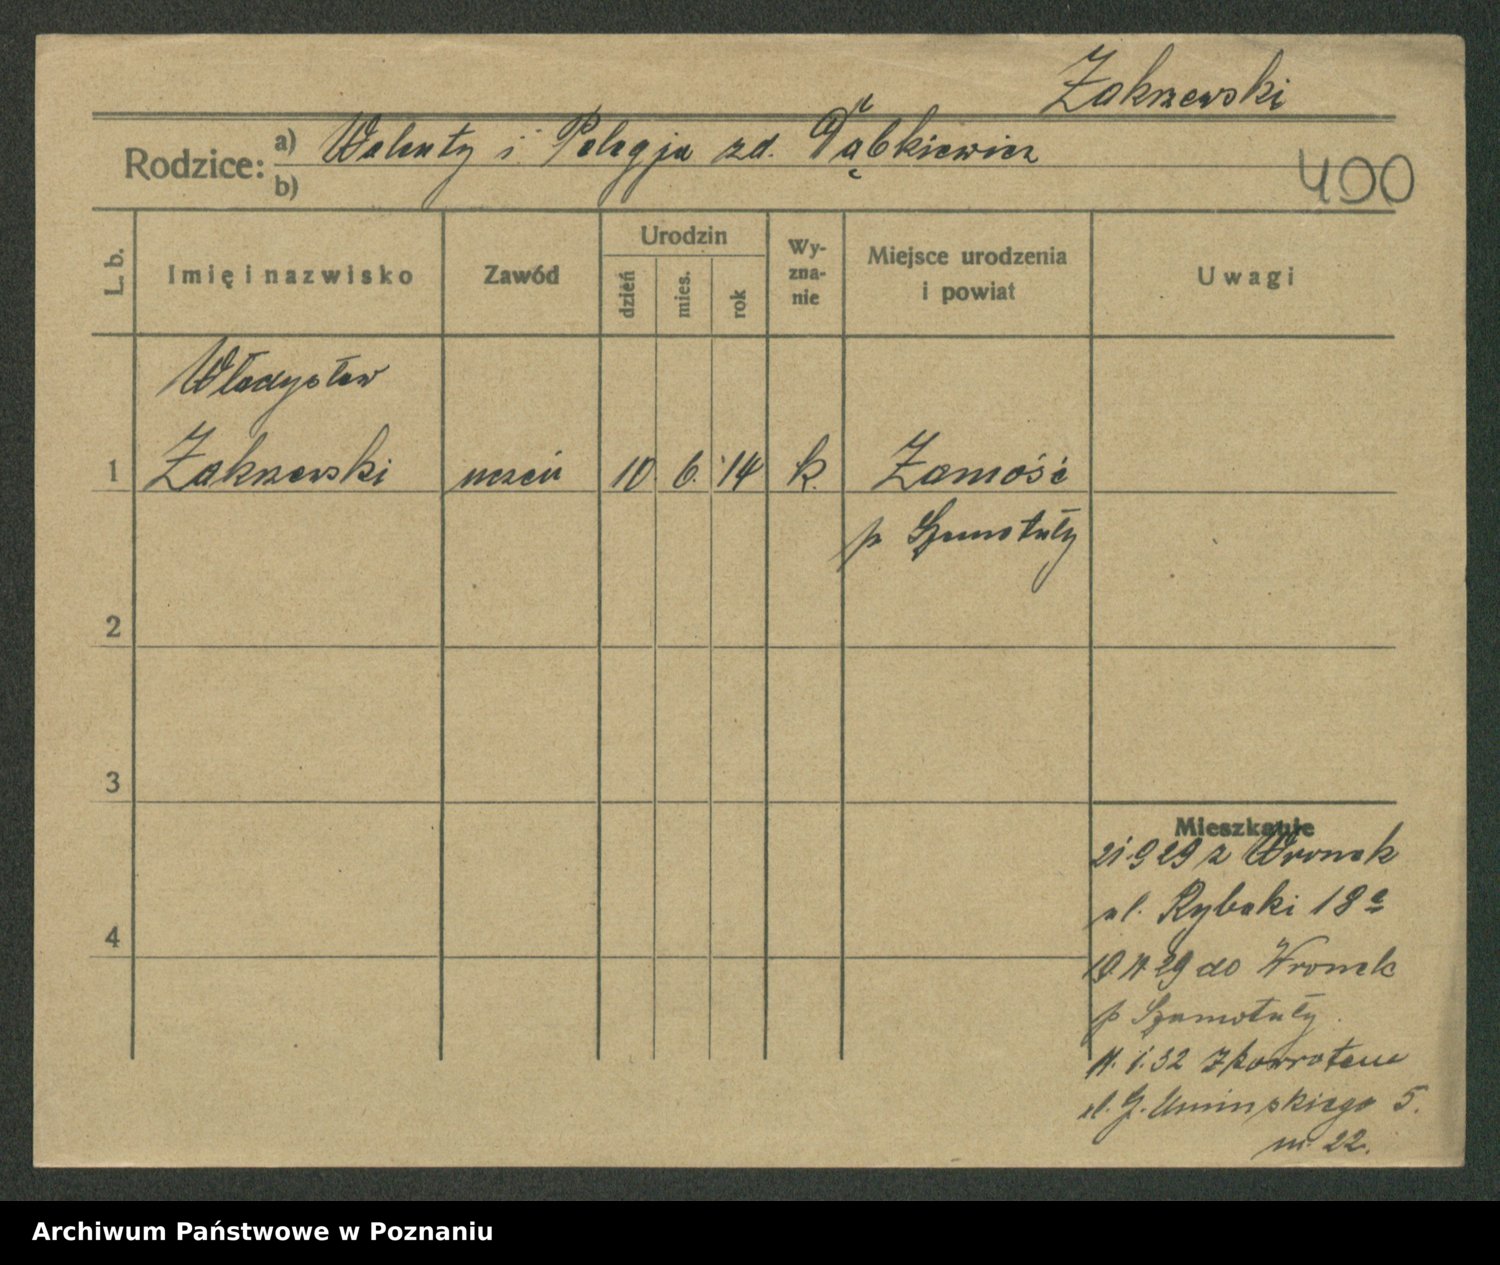 Zakrzewski
Rodzice: a) Walenty i Pelagja zd. Dąbkiewicz
b)
400
L. b.
Imię i nazwisko
Zawód
Urodzin
dzień
mies.
rok
Wy-
zna-
nie
Miejsce urodzenia
i powiat
Uwagi
Władysław
1 Zakrzewski uczeń 10. 6. 14 k. Zamość
p Szamotuły
2
3
Mieszkanie
21.9 29 z Wronek
ul. Rybaki 18a
4
19 11 29 do Wronek
p Szamotuły.
11. 1. 32 z powrotem
ul. G. Umińskiego 5.
m. 22.
Archiwum Państwowe w Poznaniu